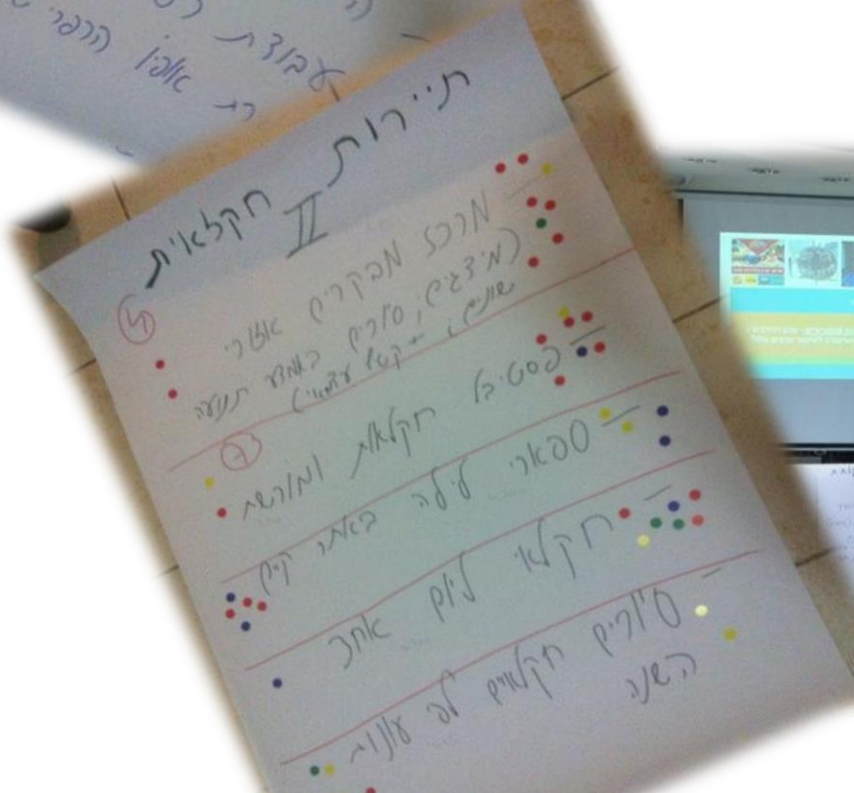 עבודת
אופן הרפרי
תיירות
חקלאית II
- מרכז מבקרים אזורי
(מיצגים, סיורים באמצעי תנועה
שונים, + קטיף עצמאי)
- פסטיבל חקלאות ומורשת
- ספארי לילה באתר קיים
- חקלאי ליום אחד
- סיורים חקלאיים לפי עונות
השנה